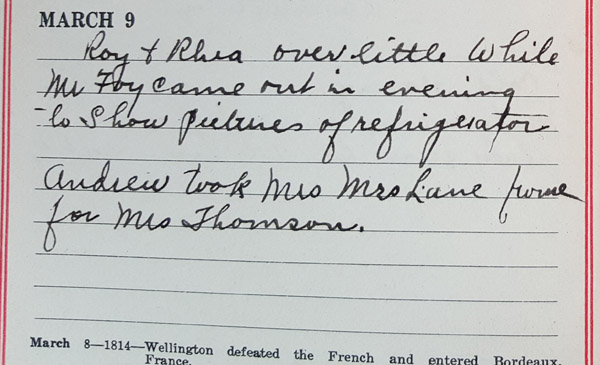 MARCH 9
Roy & Rhea over little while
Mr Foy came out in evening
to show pictures of refrigerator
Andrew took Mrs Mrs Lane home
for Mrs Thomson.
March 8—1814—Wellington defeated the French and entered Bordeaux,
France.